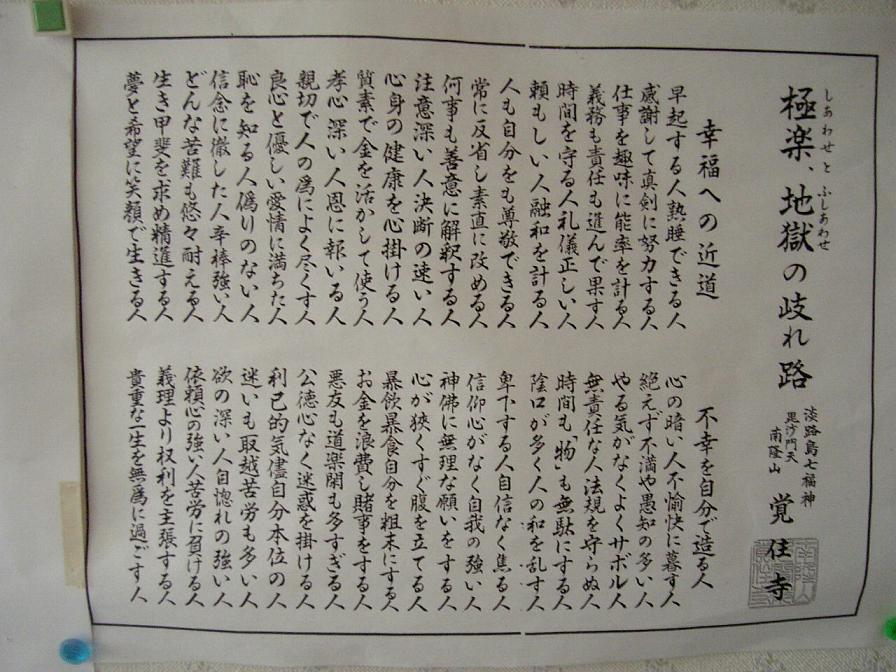 しあわせとふしあわせ
極楽、地獄の岐れ路
淡路島七福神
毘沙門天
南隆山
覚住寺
幸福への近道
早起する人熟睡できる人
感謝して真剣に努力する人
仕事を趣味に能率を計る人
義務も責任も進んで果す人
時間を守る人礼儀正しい人
頼もしい人融和を計る人
人も自分をも尊敬できる人
常に反省し素直に改める人
何事も善意に解釈する人
注意深い人決断の速い人
心身の健康を心掛ける人
質素で金を活かして使う人
孝心深い人恩に報いる人
親切で人の為によく尽くす人
良心と優しい愛情に満ちた人
恥を知る人偽りのない人
信念に徹した人辛棒強い人
どんな苦難も悠々耐える人
生き甲斐を求め精進する人
夢と希望に笑顔で生きる人
不幸を自分で造る人
心の暗い人不愉快に暮す人
絶えず不満や愚知の多い人
やる気がなくよくサボル人
無責任な人法規を守らぬ人
時間も「物」も無駄にする人
陰口が多く人の和を乱す人
卑下する人自信なく焦る人
信仰心がなく自我の強い人
神佛に無理な願いをする人
心が狭くすぐ腹を立てる人
暴飲暴食自分を粗末にする人
お金を浪費し賭事をする人
悪友も道楽閑も多すぎる人
公徳心なく迷惑を掛ける人
利己的気儘自分本位の人
迷いも取越苦労も多い人
欲の深い人自惚れの強い人
依頼心の強い人苦労に負ける人
義理より权利を主張する人
貴重な一生を無為に過ごす人